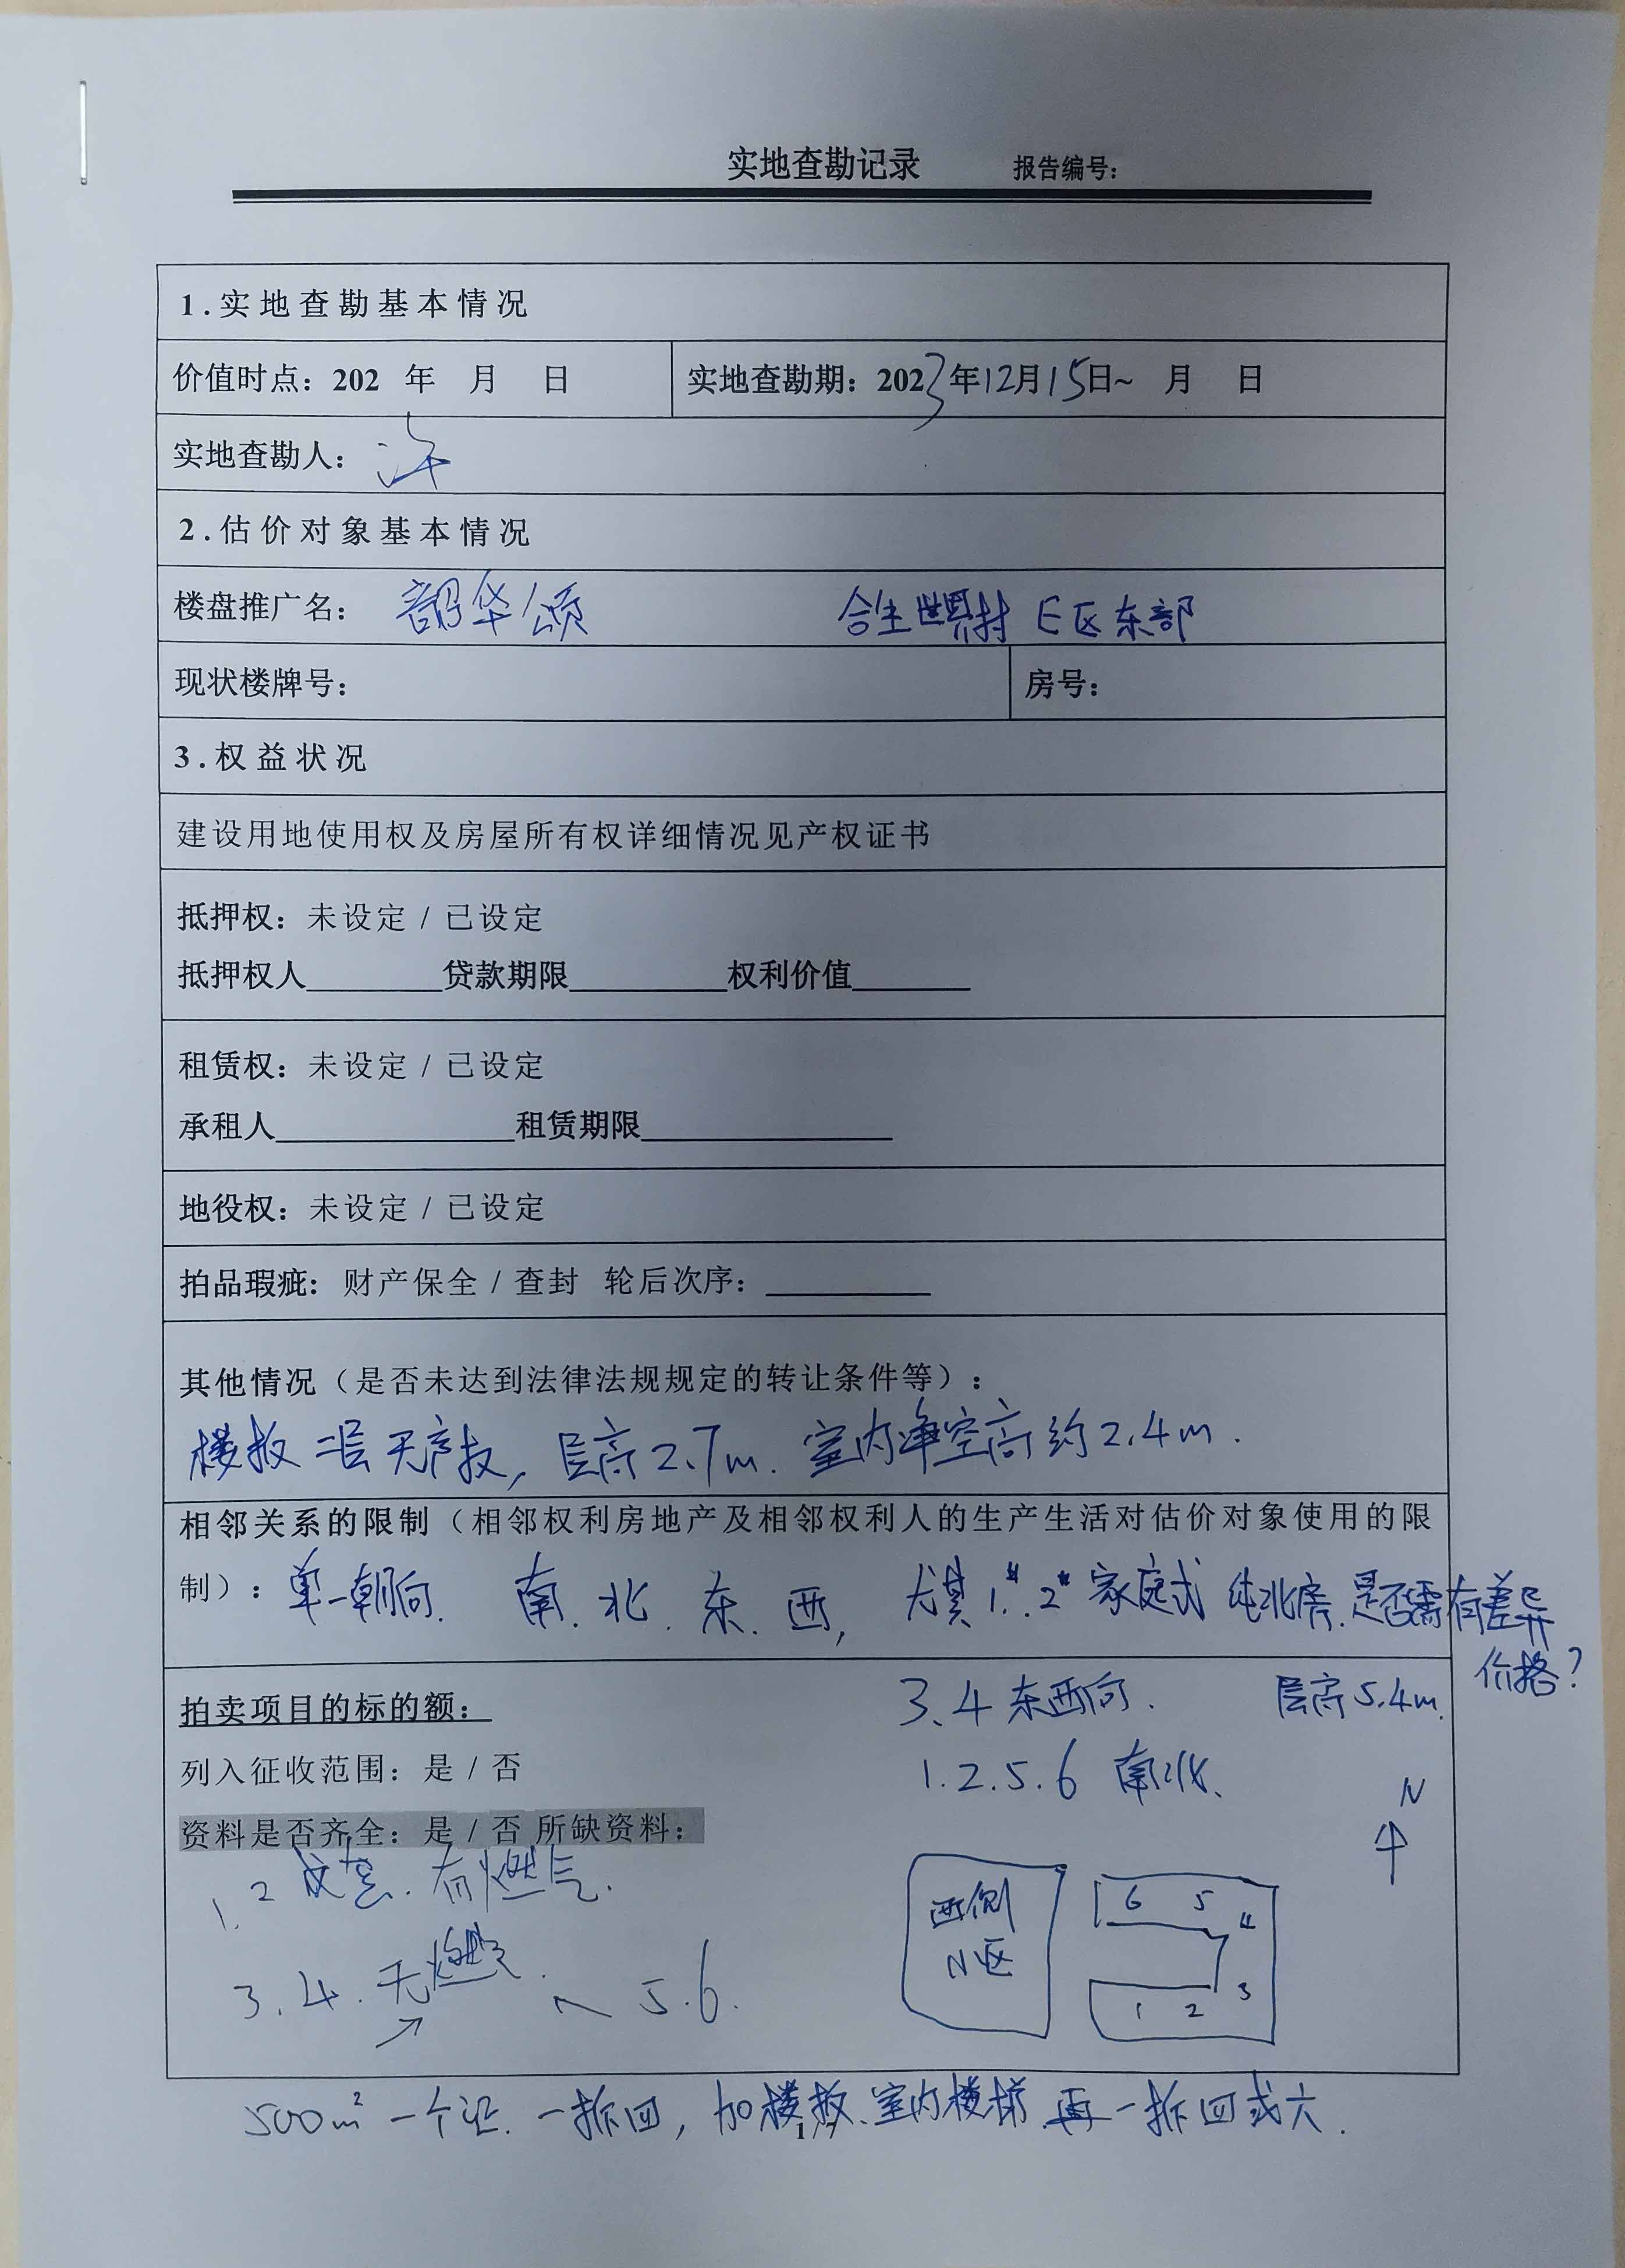 实地查勘记录 报告编号：
1.实地查勘基本情况
价值时点：202 年 月 日 实地查勘期：2023年12月15日~ 月 日
实地查勘人：
2.估价对象基本情况
楼盘推广名：韶华颂 合生世界村 E区东部
现状楼牌号： 房号：
3.权益状况
建设用地使用权及房屋所有权详细情况见产权证书
抵押权：未设定 / 已设定
抵押权人________贷款期限_________权利价值_______
租赁权：未设定 / 已设定
承租人______________租赁期限_______________
地役权：未设定 / 已设定
拍品瑕疵：财产保全 / 查封 轮后次序：__________
其他情况（是否未达到法律法规规定的转让条件等）：
楼板 二层无产权, 层高2.7m. 室内净空高约2.4m.
相邻关系的限制（相邻权利房地产及相邻权利人的生产生活对估价对象使用的限
制）：单一朝向. 南. 北. 东. 西, 尤其1#.2# 家庭式 纯北房. 是否需有差异
价格?
拍卖项目的标的额： 3.4 东西向. 层高5.4m.
列入征收范围：是 / 否 1.2.5.6 南北.
资料是否齐全：是 / 否 所缺资料：
N
1.2 有燃气.
3.4.无燃气. 5.6.
西侧
N区
6 5 4
1 2 3
500m² 一个证. 一拆四, 加楼板、室内楼梯 再一拆四或六.